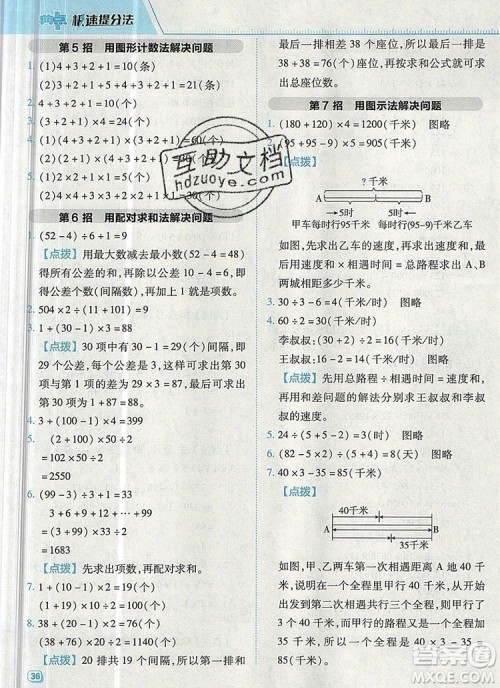 典中点 极速提分法
第5招 用图形计数法解决问题
1. (1)4+3+2+1=10(条)
(2)4+3+2+1=10(个)
2. 4+3+2+1=10(个)
3. (2+1)×(3+2+1)=18(个)
4. (2+1)×
=60(个)
5. (1)(2+1)×
(个)
(2)10×2=20(个)
第6招 用配对求和法解决问题
1. (52-4)÷6+1=9
【点拨】用最大数减去最小数(52-4=48)
得所有公差的和，再除以公差10-4=6，即可求
得公差个数(间隔数)，再加上1就是项数。
2. 504×2÷(12+100)=9
3. 1+(30-1)×3=88
【点拨】30项中有30-1=29(个)间隔，即
29个公差，每个公差是3，这样就可求出第30
项与第1项的差是3×29=87。最后可求出
第30项的数是1+87=88。
4. 3+(100-1)×4=399
5. (2+100)×50÷2
=102×50÷2
=2550
6. (99-3)÷3+1=33
3+6+9+12+…+99
=(3+99)×33÷2
=102×33÷2
=1683
【点拨】先求出项数，再配对求和。
7. 1+(19-1)×1=19(个)
8. 38+(20-1)×2=76(个)
(38+76)×20÷2=1140(个)
【点拨】20排共有19个间隔，所以第一排和
最后一排相差38个座位，所以最后一排有
38+38=76(个)，再按求和公式就可求出
总座位数。
第7招 用图示法解决问题
1. (180+120)×4=1200(千米) 图略
2. (95+95-9)×5=905(千米) 图略
【点拨】
?千米
A B
5时 5时
甲车每时行95千米 乙车每时行□千米
如图，先求出乙车的速度，再求出速度和，最
后用速度和×相遇时间=总路程求出A、B
两城相距多少千米。
3. 30÷3-6=4(千米/时) 图略
4. 60÷2=30(千米/时) 图略
李叔叔:
王叔叔:
【点拨】先用总路程÷相遇时间=速度和，
再用和差问题的解法分别求王叔叔和李叔
叔的速度。
5. 24÷(5+5-2)=3(时) 图略
6.
7. 40×3-35=85(千米)
【点拨】
40千米
A B
35千米
如图，甲、乙两车第一次相遇时距A地40千
米，说明在一个全程里甲行了40千米，从开
始出发到第二次相遇，甲、乙两车一共行了3
个全程，由一个全程甲行了40千米，则甲行了
3个40千米，即40×3=120(千米)，这时甲行
了一个全程多35千米，所以全程为40×3-
35=85(千米)。
36
互助文档
hdzuoye.com
作业帮
MXQE.COM